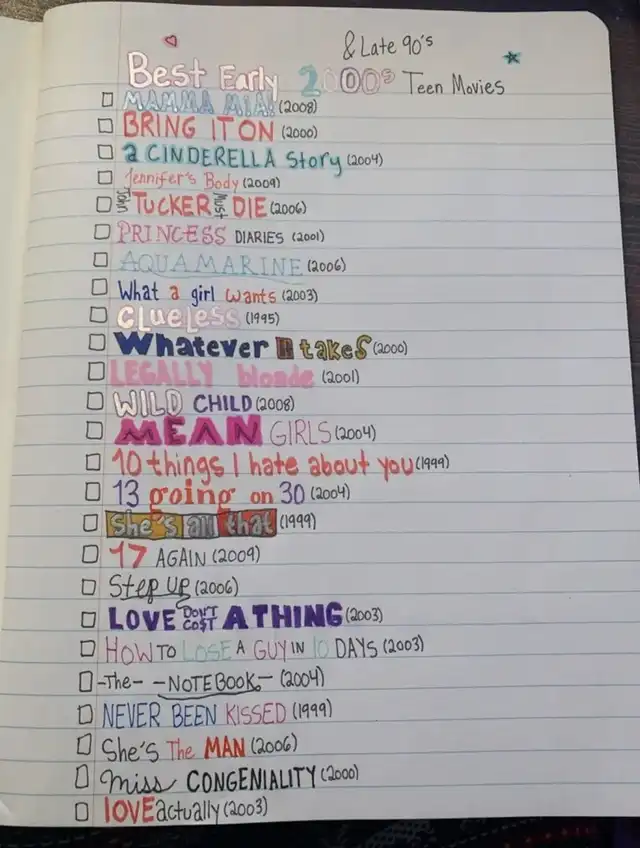 & Late 90's
Best Early 2000s Teen Movies
MAMMA MIA! (2008)
BRING IT ON (2000)
a CINDERELLA Story (2004)
Jennifer's Body (2009)
John TUCKER Must DIE (2006)
PRINCESS DIARIES (2001)
AQUAMARINE (2006)
What a girl wants (2003)
CLueLess (1995)
Whatever it takes (2000)
LEGALLY blonde (2001)
WILD CHILD (2008)
MEAN GIRLS (2004)
10 things I hate about you (1999)
13 going on 30 (2004)
She's all that (1999)
17 AGAIN (2009)
Step UP (2006)
LOVE DON'T CO$T A THING (2003)
HOW TO LOSE A GUY IN 10 DAYS (2003)
-The- -NOTEBOOK- (2004)
NEVER BEEN KISSED (1999)
She's The MAN (2006)
Miss CONGENIALITY (2000)
LOVE actually (2003)